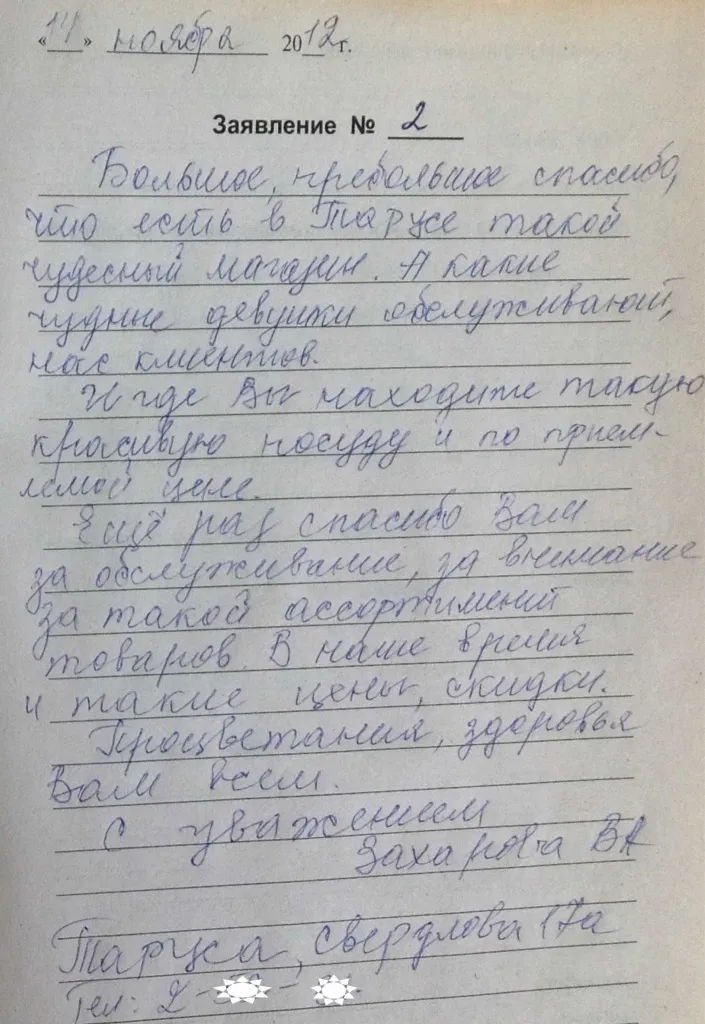 «14» ноября 2012 г.
Заявление № 2
Большое, пребольшое спасибо,
что есть в Тарусе такой
чудесный магазин. А какие
чудные девушки обслуживают,
нас клиентов.
И где Вы находите такую
красивую посуду и по прием-
лемой цене.
Ещё раз спасибо Вам
за обслуживание, за внимание
за такой ассортимент
товаров. В наше время
и такие цены, скидки.
Процветания, здоровья
Вам всем.
С уважением
Захарова ВА
Таруса, Свердлова 17а
Тел: 2-